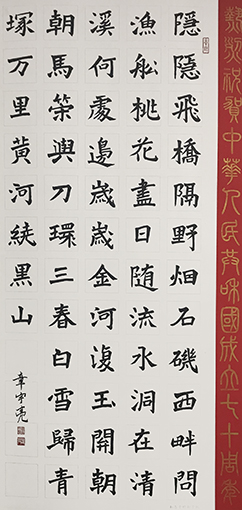 熱烈祝賀中華人民共和國成立七十周年
隱隱飛橋隔野烟石磯西畔問
漁船桃花盡日随流水洞在清
溪何處邊歲歲金河復玉關朝
朝馬策與刀環三春白雪歸青
塚万里黄河繞黑山
章宇亮